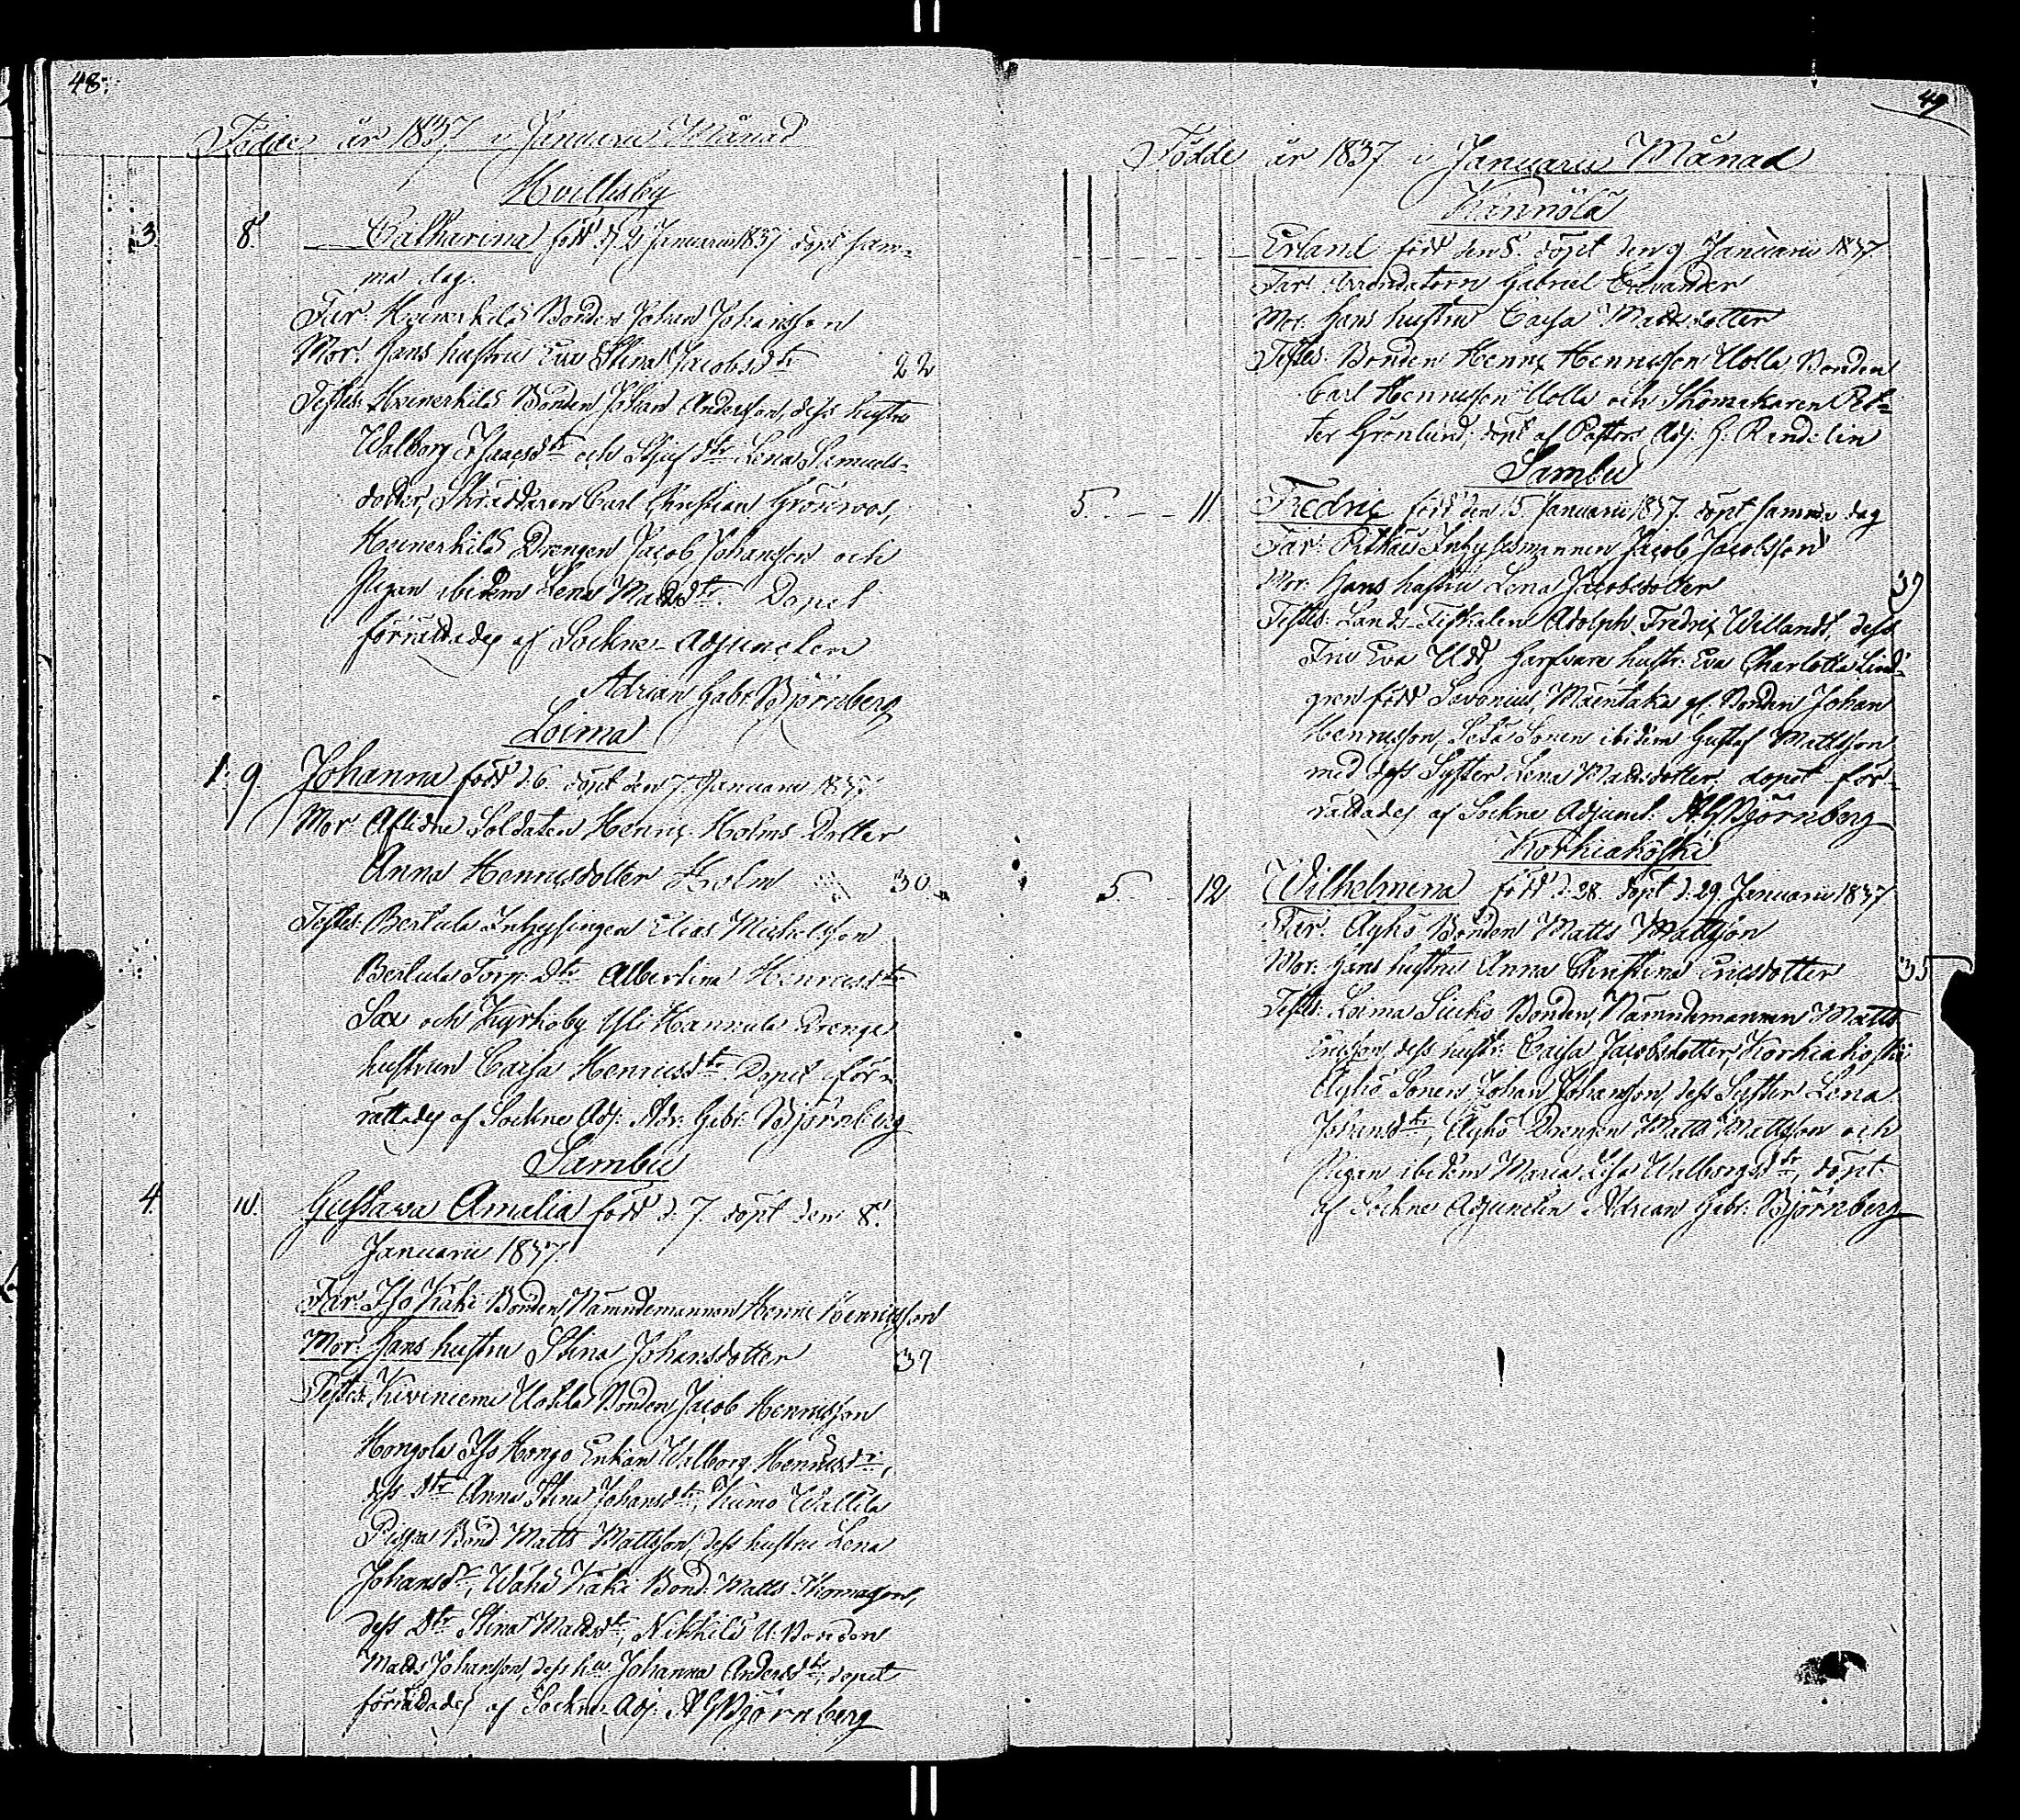 48.
Födde år 1837 i Januarii Månad
Hvittisby
3. 8. Catharina född d. 2 Januarii 1837 döpt sam-
ma dag.
Far: Bonden Johan Johansson
Mor: hans hustru Eva Stina Jacobsdtr 22
Testes: Bonden Johan Andersson, dess hustru
Walborg Isaacsdtr och dtr Lena Samuels-
dotter, Skräddaren Carl Christian
Drengen Jacob Johansson och
Pigan ibidem Lena Mattsdtr. Dopet
förrättades af Sockne-Adjuncten
Adrian Gabr. Björnberg
Loima
1. 9. Johanna född d. 6. döpt den 7. Januarii 1837.
Mor: Aflidne Soldaten Henric Holms Dotter
Anna Henricsdotter Holm 30.
Testes: Bertula Inhysingen Elias Michelsson
Bertula Torp. Dtr Albertina Henricsdtr
Sax och Kyrkoby Yli Hannula Drenge
hustrun Caisa Henricsdtr. Dopet för-
rättades af Sockne Adj. Adr. Gabr. Björnberg
Sambu
4. 10. Gustava Amalia född d. 7. döpt den 8.
Januarii 1837.
Far: Iso Käki Bonden, Nämndemannen Henric Henricsson
Mor: hans hustru Stina Johansdotter 37
Testes: Kiviniemi Uotila Bonden Jacob Henricsson
Hongola Iso Hongo Enkan Walborg Henricsdtr,
dess dtr Anna Stina Johansdtr, Kumo Wallila
Bond Matts Mattsson, dess hustru Lena
Johansdtr, Wähä Käki Bond. Matts Thomasson,
dess Dtr Stina Mattsdtr, Bonden
Matts Johansson, dess hu Johanna Andersdtr, dopet
förrättades af Sockne-Adj. A G Björnberg
49
Födde år 1837 i Januarii Månad
Kännölä
Erland född den 8. döpt den 9 Januarii 1837
Far: Arrendatorn Gabriel
Mor: hans hustru Caisa Mattsdotter
Testes: Bonden Henric Henricsson Uolla Bonden
Carl Henricsson Uolla och Skomakaren Pet-
ter Grönlund, döpt af Pastors Adj. G. Randelin
Sambu
5 11. Fredric född den 15. Januarii 1837. döpt samma dag
Far: Inhysesmannen Jacob Jacobsson
Mor: hans hustru Lena Jacobsdotter 39
Testes: Lands Fiskalen Adolph Fredric Willandt, dess
Fru Eva Udd, Garfvare hustr. Eva Charlotta Lind-
gren född Savonius, Mäentaka gl. Bonden Johan
Henricsson, Sonen ibidem Gustaf Mattsson
med dess Syster Lena Mattsdotter, dopet för-
rättades af Sockne Adjunct. A G Björnberg
Korkiakoski
5. 12 Wilhelmina född d. 28. döpt d. 29. Januarii 1837
Far: Äyhö Bonden Matts Mattsson
Mor: hans hustru Anna Christina Ericsdotter 35
Testes: Loima Bonden, Nämndemannen Matts
Ericsson, dess hustr. Caisa Jacobsdotter, Korkiakoski
Äyhö Sonen Johan Johansson, dess Syster Lena
Johansdtr, Äyhö Drengen Matts Mattsson och
Pigan ibidem Maria Lisa Walborgsdtr, döpt
af Sockne Adjuncten Adrian Gabr. Björnberg